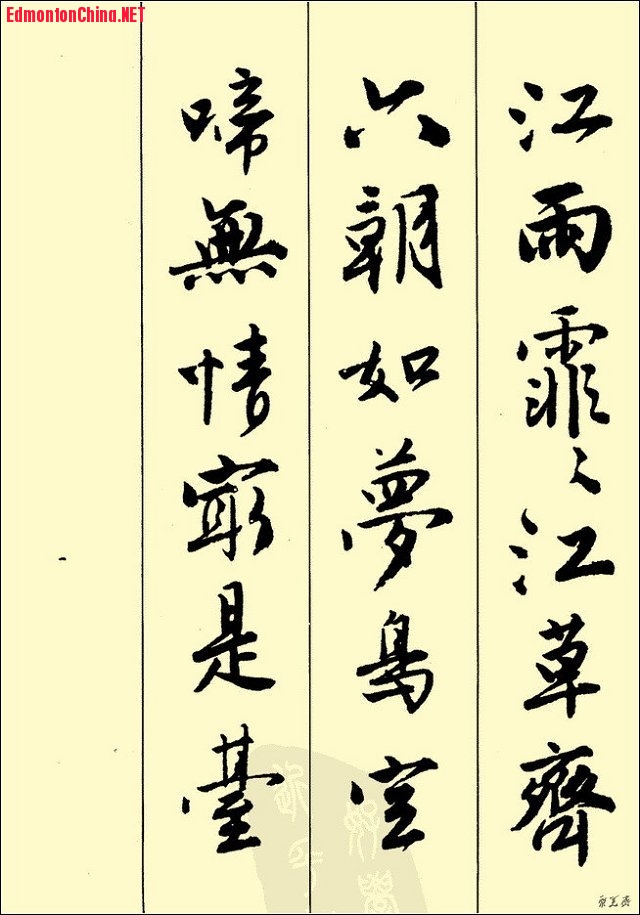 EdmontonChina.NET
江雨霏々江草齊
六朝如夢鳥空
啼無情最是臺